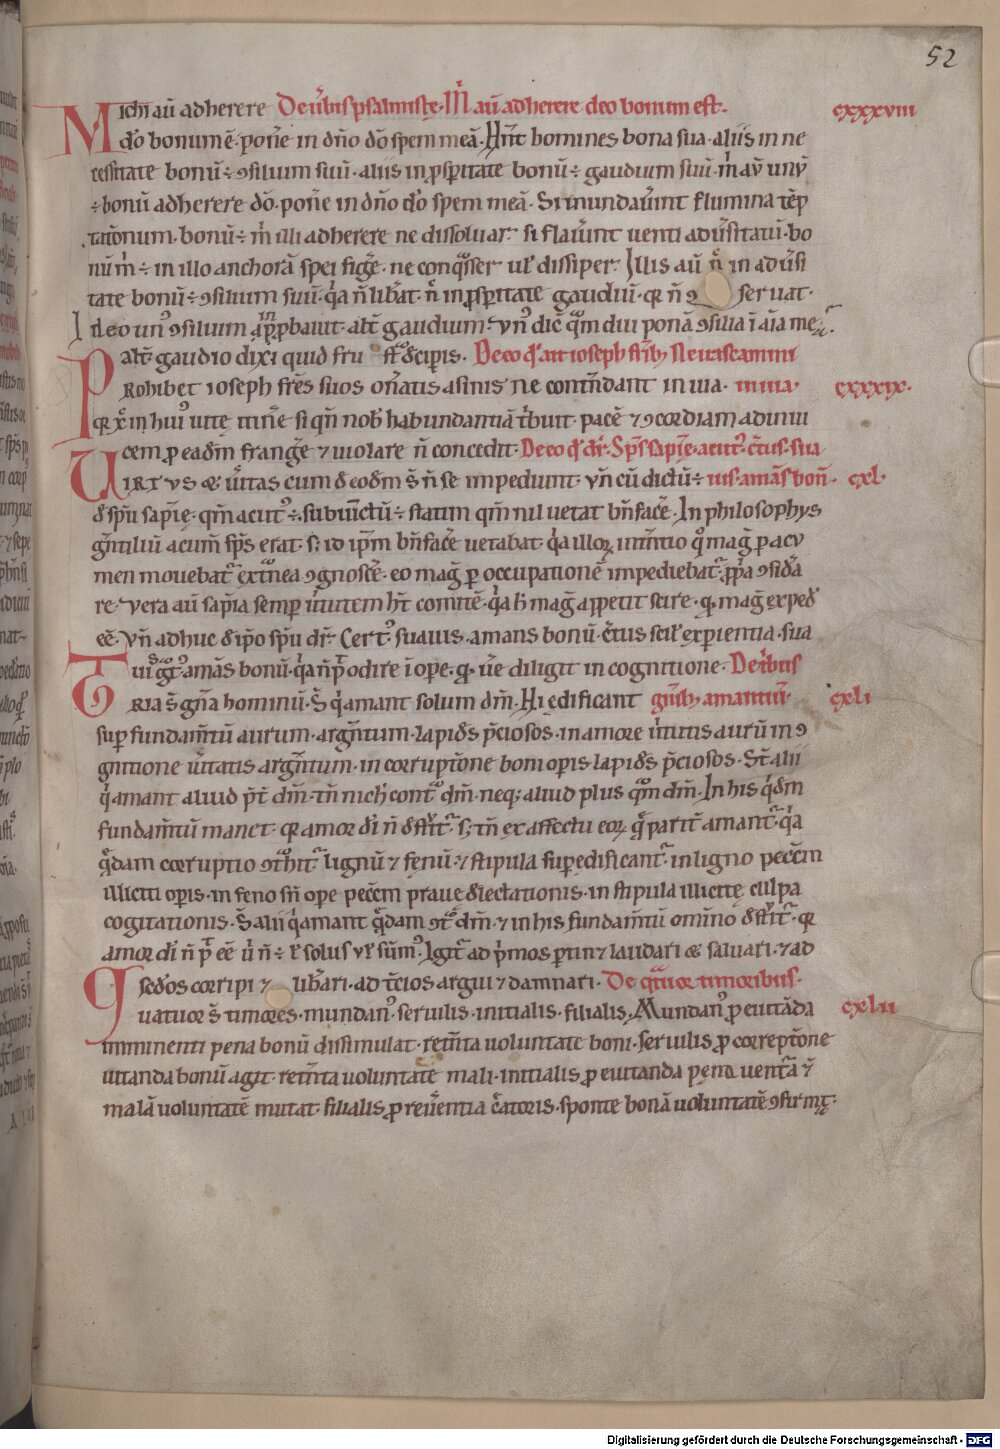 52
Michi aū adherere De ūbis psalmistę. M̍ aū adherere deo bonum est. cxxxviii
dō bonum ē. pon̄e in dn̄o dō spem meā. Hn̄t homines bona sua. aliis in ne
cessitate bonū ÷ ꝯsilium suū. aliis in ꝓsꝑitate bonū ÷ gaudium suū. m̍ aū unū
÷ bonū adherere dō. pon̄e in dn̄o dō spem meā. Si inundauer̄int flumina tēp
tationum. bonū ÷ m̍ illi adherere ne dissoluar. si flauer̄int uenti adūsitatū. bo
nū m̍ ÷ in illo anchorā spei figḡe. ne conq̄sser uł dissiper. Illis aū n̄ in adūsi
tate bonū ÷ ꝯsilium suū. q̍a n̄ libat. n̄ in ꝓsꝑitate gaudiū. qr n̄ ꝯ seruat.
Ideo un' ꝯsilium ꝓbauit. alt̄ gaudium. vn̄ dic̄ q̄m diu ponā ꝯsilia ī aīa mea.
Alt̄ gaudio dixi quid fru st̄ decipis. De eo qd ait ioseph fr̄ib; Ne irascamini
Prohibet ioseph fr̄es suos on̄atis asinis ne contendant in uia. in uia. cxxxix.
qr xp̄ in hui' uitę itin̄e si qn̄ nob̄ habundantiā t̍buit. pacē ⁊ ꝯcordiam ad inui
cem ꝓ eadm̄ frangḡe ⁊ uiolare n̄ concedit. De eo qd dr̄. Sp̄s sapīę. acut'. c̄tus. sua
VIRTVS ⁊ ūitas cum de eodm̄ s̄ n̄ se impediunt. vn̄ cū dictū ÷ uis. amās bon̄. cxl.
de sp̄u sapīę. qm̄ acut' ÷. subiunctū ÷ statim qm̄ nil uetat bn̄facē. In philosophys
gentiliū acum̄ sp̄s erat. s; id ip̄m bn̄facē uetabat. q̍a illoꝝ intentio q̊ mag̍ ꝑ acu
men mouebat̄ extn̄ea ꝯgnoscē. eo mag̍ ꝑ occupationē impediebat̄. ꝓp̍a ꝯsidā
re. Vera aū sapīa semꝑ ūtutem ht̄ comitē. q̍a h̄ mag̍ appetit scire. qd mag̍ exped̄
ēē. Vn̄ adhuc de ip̄o sp̄u dr̄. Cert' suauis. amans bonū. c̄tus scił exꝑientia. sua
uis gustu. amās bonū. q̍a n̄ p̄t odire ī ope. qd uē diligit in cognitione. De t̍bus
TRIA s̄ gn̄a hominū. s̄ q̍ amant solum dm̄. Hi edificant gn̄ib; amantiū. cxli
suꝑ fundam̄tū aurum. argentum. lapides p̄ciosos. in amore ūtutis aurū in ꝯ
gnitione ūitatis argentum. in corruptione boni opis lapides p̄ciosos. St̄ alii
q̍ amant aliud p̄t dm̄. tn̄ nich̄ cont̊ dm̄. neq; aliud plus q̄m dm̄. In his q̍dm̄
fundam̄tū manet. qr amor di̅ n̄ destr̍it̄. s; tn̄ ex affectu eoꝝ q̄ parit̄ amant̄. q̍a
q̄dam corruptio ꝯt̊hit̄ lignū ⁊ fenū. ⁊ stipula suꝑedificant̄. in ligno pecc̄m
illiciti opis. in feno sn̄ ope pecc̄m prauę delectationis. in stipula illicitę culpa
cogitationis. s̄ alii q̍ amant q̄dam ꝯt̊ dm̄. ⁊ in his fundam̄tū omīno destr̍it̄. qr
amor di̅ n̄ p̄t ēē u̍ n̄ ÷ ł solus uł sūm'. Igit̄ ad p̍mos ꝑtinet laudari ⁊ saluari. ⁊ ad
secdōs corripi ⁊ libari. ad t̄cios argui ⁊ damnari. De q̄tuor timoribus.
Qvatuor s̄ timores. mundan'. seruilis. initialis. filialis. Mundan' ꝓ euitāda cxlii
imminenti pena bonū dissimulat. retenta uoluntate boni. seruilis ꝓ correptione
uitanda bonū agit. retenta uoluntate mali. initialis ꝓ euitanda pena uent̄a ⁊
malā uoluntatē mutat. filialis ꝓ reūentia c̄atoris. sponte bonā uoluntatē ꝯfirmat.
Digitalisierung gefördert durch die Deutsche Forschungsgemeinschaft - DFG